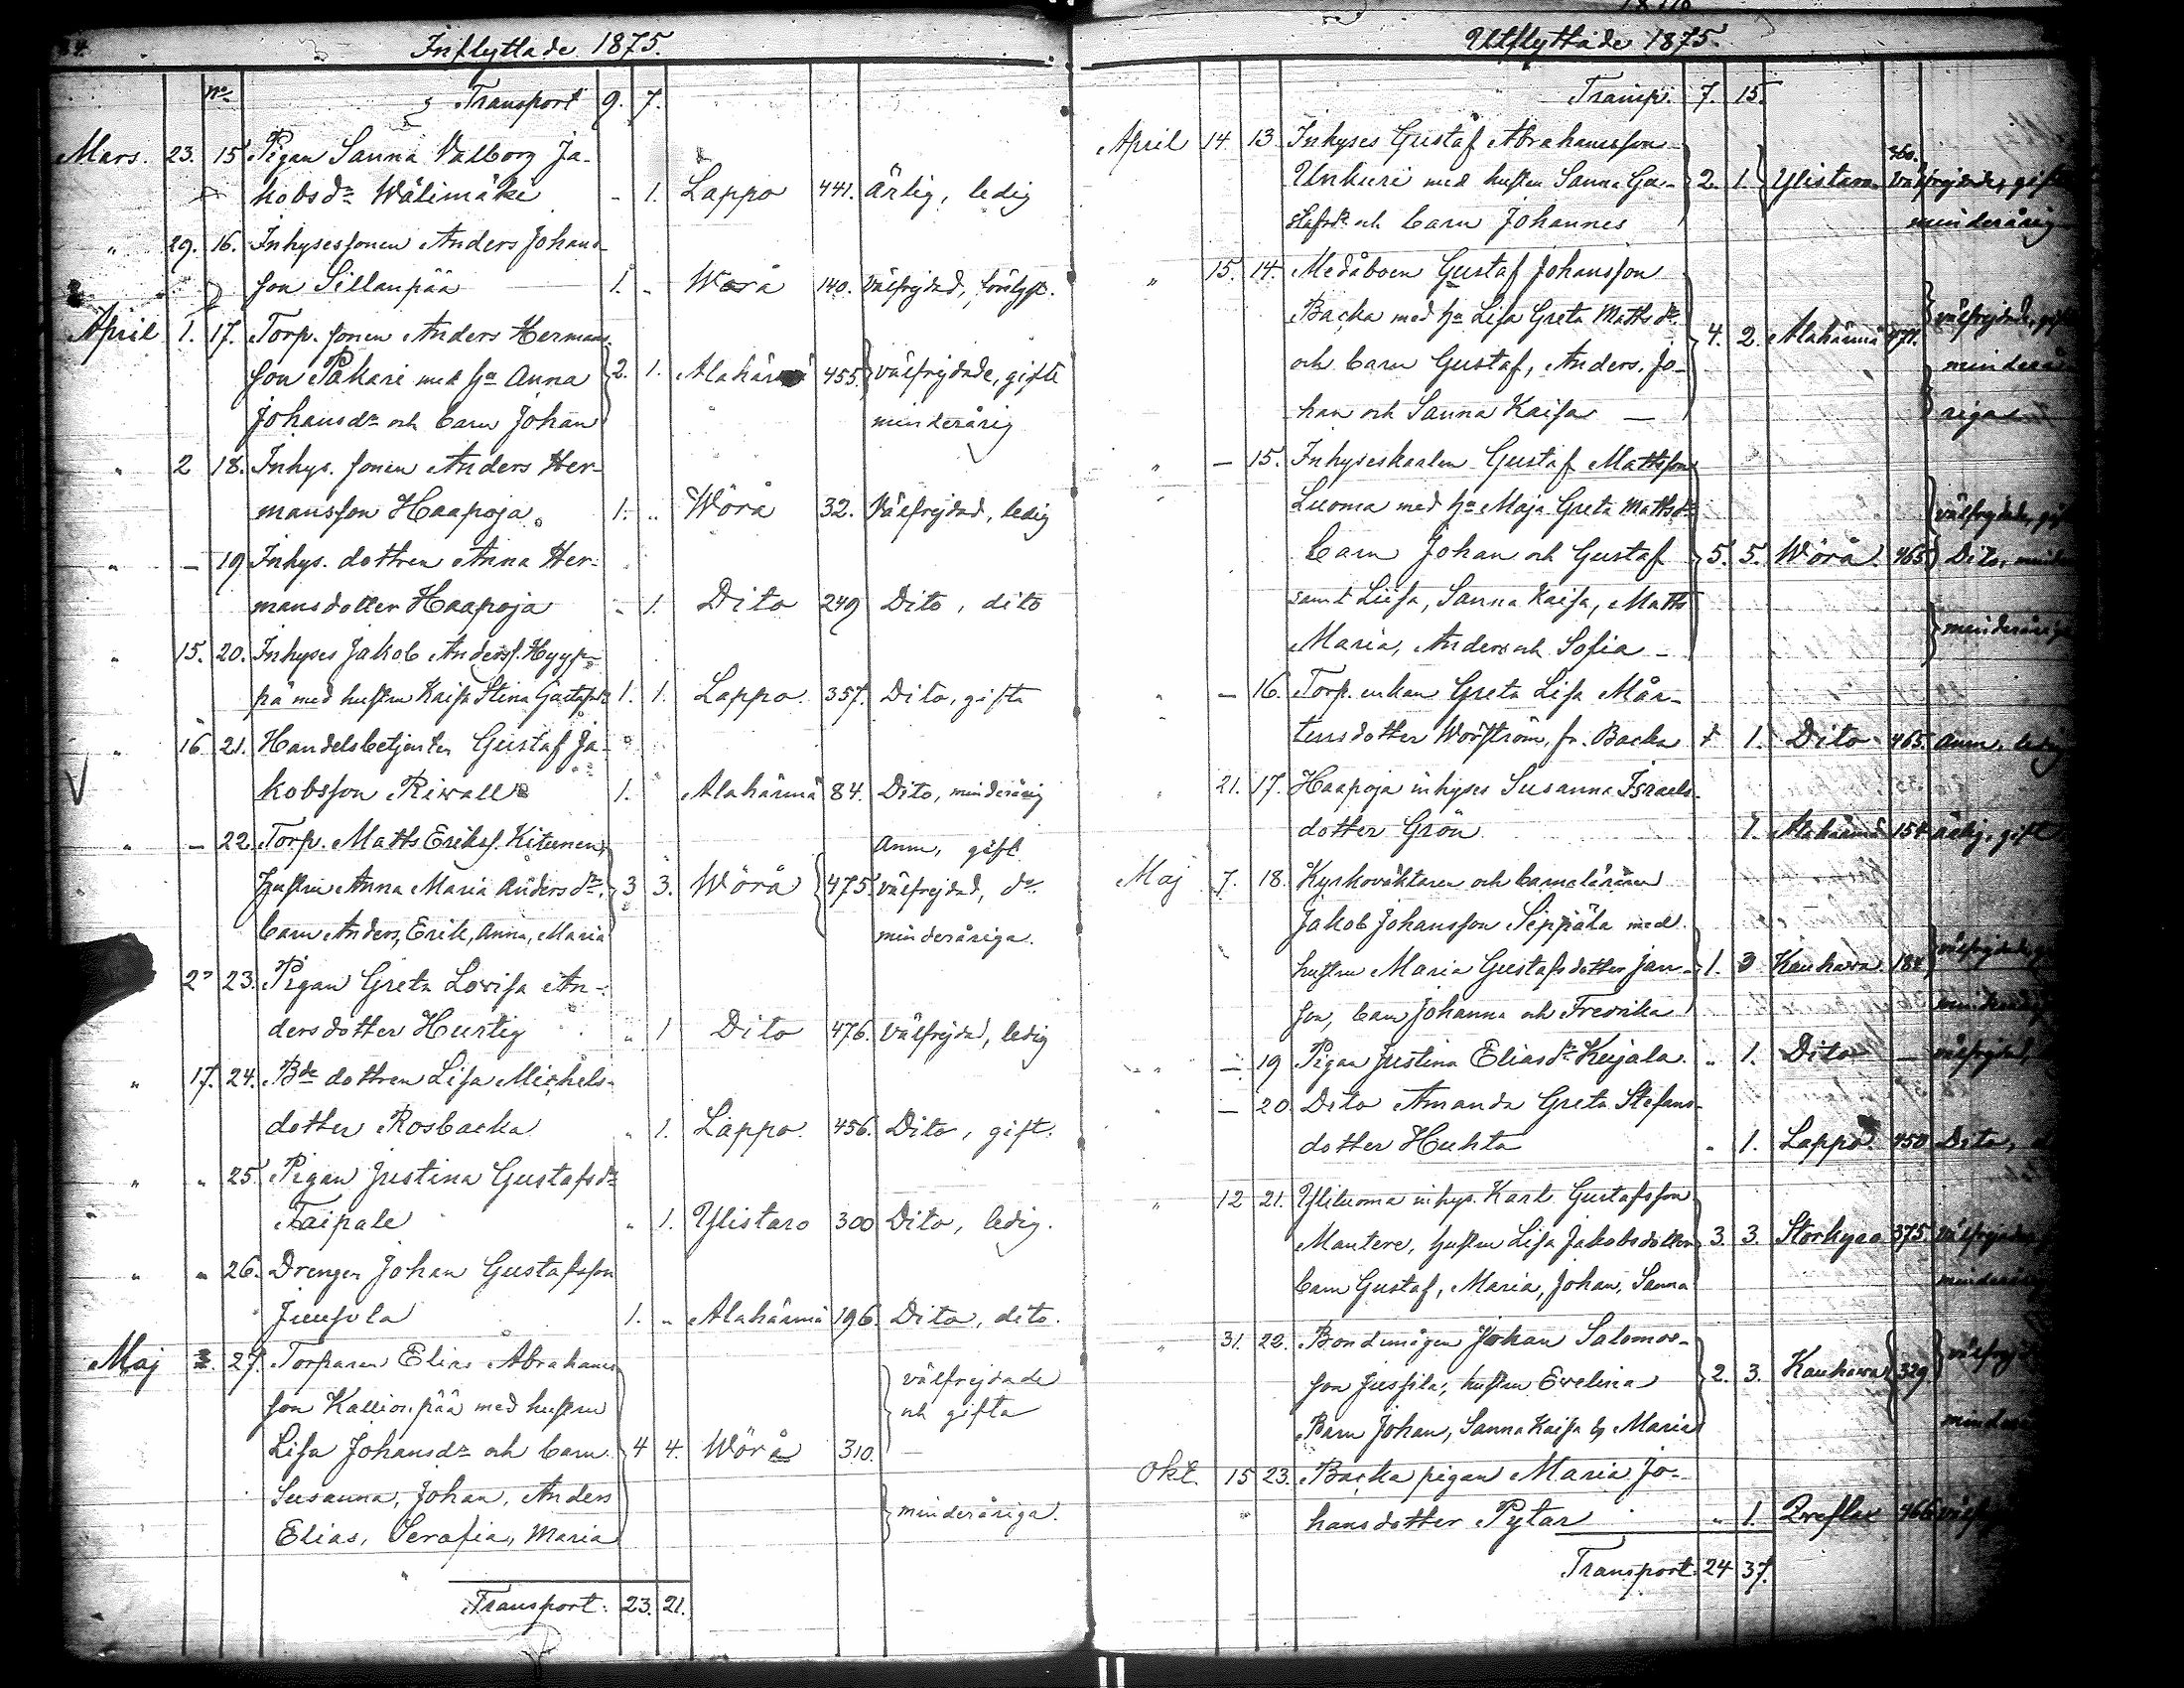 Inflyttade 1875.
No Transport 9. 7.
Mars. 23. 15 Pigan Sanna Valborg Ja-
kobsdr Wälimäki - 1. Lappo 441. ärlig, ledig
" 29. 16. Inhysessonen Anders Johans-
son Sillanpää 1. " Wörå 140. välfrejdad,
April 1. 17. Torp. sonen Anders Hermans-
son Pakari med hu Anna 2. 1. Alahärmä 455 välfrejdade, gifte
Johansdr och barn Johan minderårig
" 2 18. Inhys. sonen Anders Her-
mansson Haapoja 1. " Wörå 32. Välfrejdad, ledig
" — 19 Inhys. dottren Anna Her-
mansdotter Haapoja " 1. Dito 249 Dito, dito
" 15. 20. Inhyses Jakob Anderss. Hyyp-
pä med hustru Kaisa Stina Gustafsdr 1. 1. Lappo. 357. Dito, gifta
" 16 21. Handelsbetjenten Gustaf Ja-
kobsson Riwall 1. Alahärmä 84. Dito, minderårig
" — 22. Torp. Matts Erikss. Kitunen, Anm, gift
hustru Anna Maria Andersdr. 3 3. Wörå 475. välfrejdad, do
barn Anders, Erik, Anna, Maria minderåriga.
23. Pigan Greta Lovisa An-
dersdotter Hurtig " 1 Dito 476. Välfrejdad, ledig
" 17. 24. Bde dottren Lisa Michels-
dotter Rosbacka " 1. Lappo. 456. Dito, gift.
" " 25. Pigan Justina Gustafsdr
Taipale " 1. Ylistaro 300 Dito, ledig.
" " 26. Drengen Johan Gustafsson
Juusola 1. " Alahärmä 196. Dito, dito.
Maj 27. Torparen Elias Abrahams-
son Kallionpää med hustru välfrejdade och gifta
Lisa Johansdr och barn 4 4. Wörå 310. —
Susanna, Johan, Anders
Elias, Serafia, Maria minderåriga.
Transport: 23. 21.
Utflyttade 1875.
Transp. 7. 15.
April 14. 13. Inhyses Gustaf Abrahamsson 360.
Unkuri med hustru Sanna Gu- 2. 1. Ylistaro välfrejdade, gifte
stafsdr och barn Johannes minderårig
" 15. 14. Medåboen Gustaf Johansson
Backa med hu Lisa Greta Mattsdr 4. 2. Alahärmä 471. välfrejdade,
och barn Gustaf, Anders, Jo- minderå-
han och Sanna Kaisa — riga
" — 15. Inhyseskarlen Gustaf Mattsson
Luoma med hu Maja Greta Mattsdr välfrejdade,
barn Johan och Gustaf 5. 5. Wörå 465 Dito,
samt Liisa, Sanna Kaisa, Matts
Maria, Anders och Sofia — minderåriga
" — 16. Torp. enkan Greta Lisa Mår-
tensdotter Worström, fr. Backa 1. Dito 465. Anm. ledig
" 21. 17. Haapoja inhyses Susanna Israels-
dotter Grön 1. Alahärmä 154 ärlig, gift
Maj 7. 18. Kyrkoväktaren och barnaläraren
Jakob Johansson Seppälä med
hustru Maria Gustafsdotter Jan- 1. 3 Kauhawa. 184 välfrejdade,
son, barn Johanna och Fredrika
" — 19 Pigan Justina Eliasdr Kujala. " 1. Dito — välfrejdad
" — 20. Dito Amanda Greta Stefans-
dotter Huhta " 1. Lappo. 450 Dito,
" 12 21. Yliluoma inhys. Karl Gustafsson
Mantere, hustru Lisa Jakobsdotter 3. 3. Storkyro 375. välfrejdade
barn Gustaf, Maria, Johan, Sanna
" 31. 22. Bondemågen Johan Salomos-
son Jussila, hustru Evelina 2. 3. Kauhawa 329.
Barn Johan, Sanna Kaisa Maria
Okt 15 23. Backa pigan Maria Jo-
hansdotter Pytar " 1. Qveflax 466
Transport. 24 37.